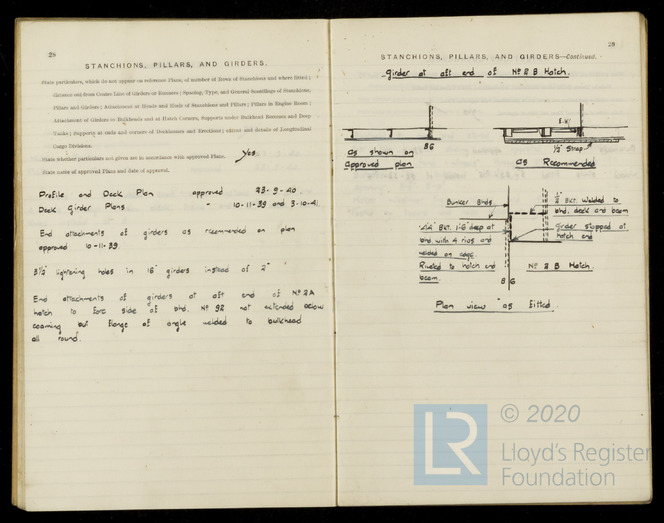 28
STANCHIONS, PILLARS, AND GIRDERS.
State particulars, which do not appear on reference Plans, of number of Rows of Stanchions and where fitted;
distance out from Centre Line of Girders or Runners; Spacing, Type, and General Scantlings of Stanchions,
Pillars and Girders; Attachments at Heads and Heels of Stanchions and Pillars; Pillars in Engine Room;
Attachment of Girders to Bulkheads and at Hatch Corners, Supports under Bulkhead Recesses and Deep
Tanks; Supports at ends and corners of Deckhouses and Erections; sizes and details of Longitudinal
Cargo Divisions.
State whether particulars not given are in accordance with approved Plans. Yes
State name of approved Plans and date of approval.
Profile and Deck Plan approved 23-9-40
Deck Girder Plans " 10-11-39 and 3-10-41.
End attachments of girders as recommended on plan
approved 10-11-39
3½" lightening holes in 16" girders instead of 2"
End attachments of girders at aft end of Nº 2A
hatch to fore side of bhd. Nº 92 not extended below
coaming but flange of angle welded to bulkhead
all round.
29
STANCHIONS, PILLARS, AND GIRDERS—Continued.
Girder at aft end of Nº 2 B Hatch.
E.W.
86
½" Strap
as shown on
approved plan
as Recommended
Bunker Bhds.
Bkt. Welded to
bhd, deck and beam
Bkt. 1'-6" deep at
bhd. with 4 rivs and
welded on edge.
Riveted to hatch end
beam.
girder stopped at
hatch end
86
Nº 2 B Hatch.
Plan view "as fitted.
LR
© 2020
Lloyd's Register
Foundation